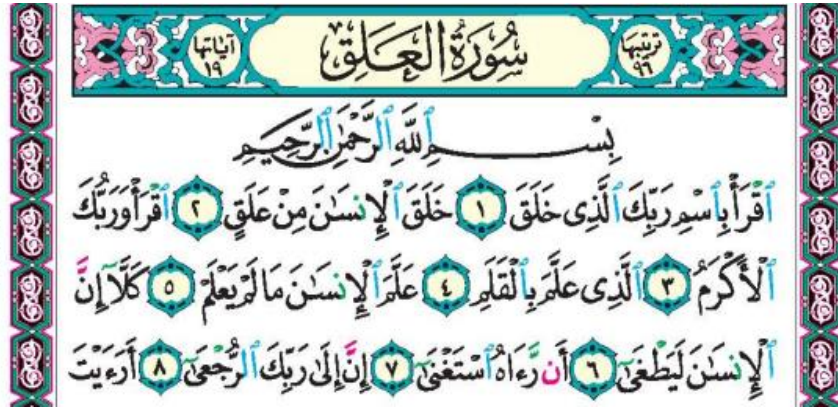 ترتيبها ٩٦ سُورَةُ العَلَقِ آيَاتها ١٩
بِسْمِ ٱللَّهِ ٱلرَّحْمَٰنِ ٱلرَّحِيمِ
ٱقْرَأْ بِٱسْمِ رَبِّكَ ٱلَّذِى خَلَقَ ١ خَلَقَ ٱلْإِنسَٰنَ مِنْ عَلَقٍ ٢ ٱقْرَأْ وَرَبُّكَ
ٱلْأَكْرَمُ ٣ ٱلَّذِى عَلَّمَ بِٱلْقَلَمِ ٤ عَلَّمَ ٱلْإِنسَٰنَ مَا لَمْ يَعْلَمْ ٥ كَلَّآ إِنَّ
ٱلْإِنسَٰنَ لَيَطْغَىٰٓ ٦ أَن رَّءَاهُ ٱسْتَغْنَىٰٓ ٧ إِنَّ إِلَىٰ رَبِّكَ ٱلرُّجْعَىٰٓ ٨ أَرَءَيْتَ